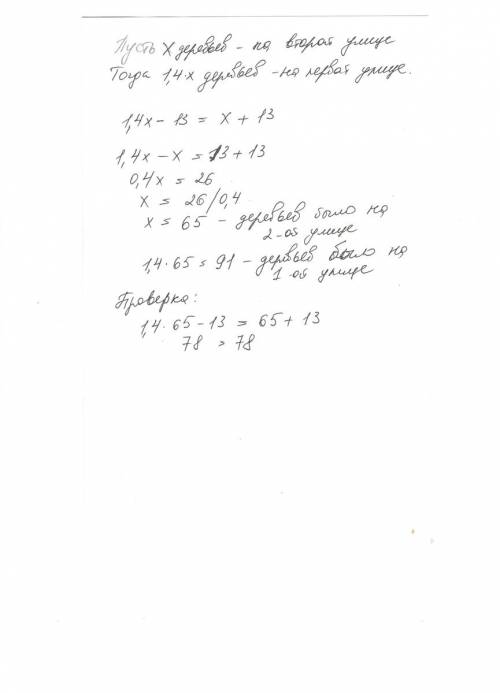 Пусть x деревьев - на второй улице
Тогда 1,4·x деревьев - на первой улице.
1,4x - 13 = x + 13
1,4x - x = 13 + 13
0,4x = 26
x = 26/0,4
x = 65 - деревьев было на
2-ой улице
1,4·65 = 91 - деревьев было на
1-ой улице
Проверка:
1,4·65 - 13 = 65 + 13
78 = 78